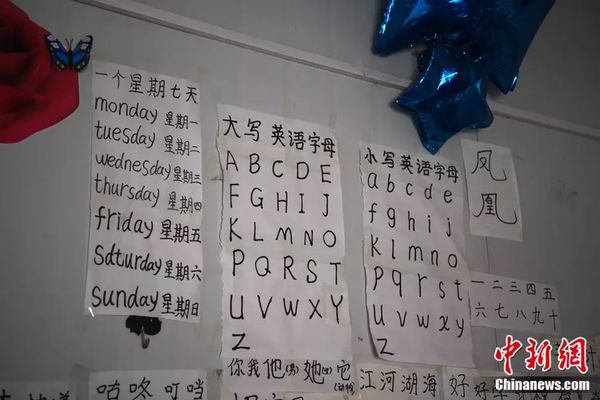 一个星期七天
monday 星期一
tuesday 星期二
wednesday 星期三
thursday 星期四
friday 星期五
Sdturday 星期六
sunday 星期日
大写 英语字母
A B C D E
F G H I J
K L M N O
P Q R S T
U V W X Y
Z
小写英语字母
a b c d e
f g h i j
k l m n o
p q r s t
u v w x y
Z
凤
凰
一二三四五
六七八九十
你我他(男)她(女)它(动物)
江河湖海
好好
咕咚叮当
中新网
Chinanews.com